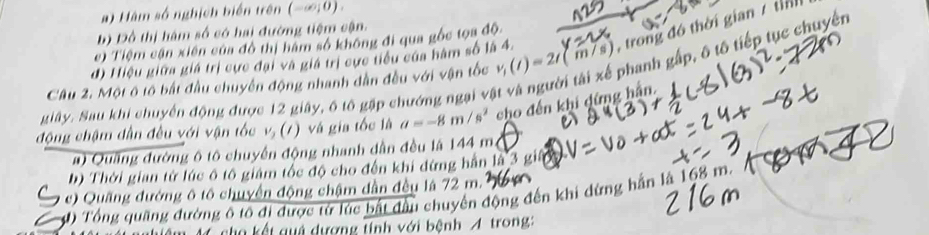 a) Hàm số nghịch biến trên (−∞;0).
b) Đồ thị hàm số có hai đường tiệm cận.
c) Tiệm cận xiên của đồ thị hàm số không đi qua gốc tọa độ.
d) Hiệu giữa giá trị cực đại và giá trị cực tiểu của hàm số là 4.
Câu 2. Một ô tô bắt đầu chuyển động nhanh dần đều với vận tốc v₁(t) = 2t (m/s), trong đó thời gian t tính
giây. Sau khi chuyển động được 12 giây, ô tô gặp chướng ngại vật và người tài xế phanh gấp, ô tô tiếp tục chuyển
động chậm dần đều với vận tốc v₂(t) và gia tốc là a = −8 m/s² cho đến khi dừng hẳn.
a) Quãng đường ô tô chuyển động nhanh dần đều là 144 m
c) 24(3) + 1/2 (-8)(3)² = 72m
b) Thời gian từ lúc ô tô giảm tốc độ cho đến khi dừng hẳn là 3 giây
V = V0 + at = 24 + -8t
t = 3
c) Quãng đường ô tô chuyển động chậm dần đều là 72 m. 36m
S d) Tổng quãng đường ô tô đi được từ lúc bắt đầu chuyển động đến khi dừng hẳn là 168 m.
216m
cho kết quả dương tính với bệnh A trong: